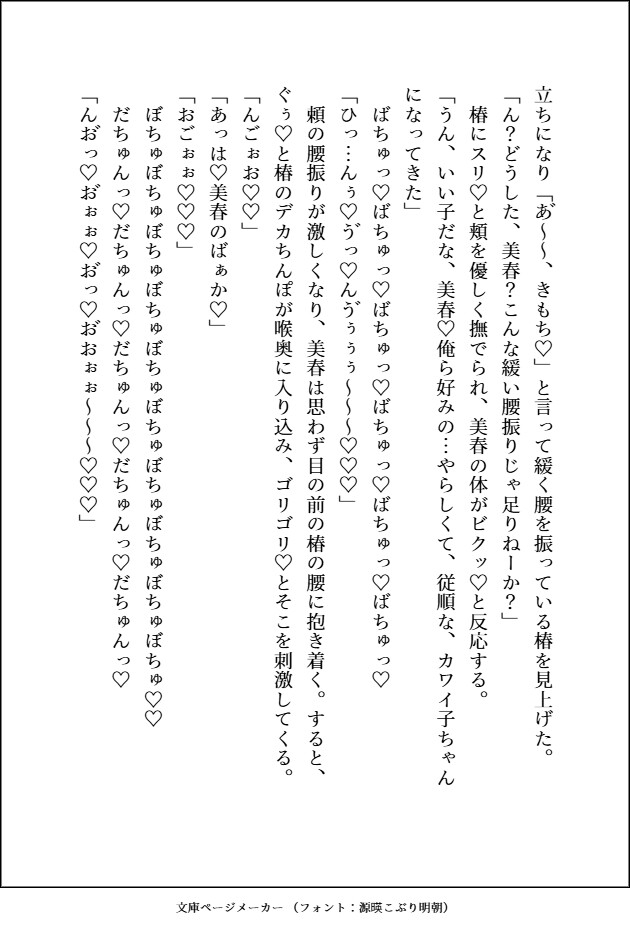 立ちになり「あ゛〜〜、きもち♡」と言って緩く腰を振っている椿を見上げた。
「ん？どうした、美春？こんな緩い腰振りじゃ足りねーか？」
椿にスリ♡と頬を優しく撫でられ、美春の体がビクッ♡と反応する。
「うん、いい子だな、美春♡俺ら好みの…やらしくて、従順な、カワイ子ちゃん
になってきた」
ばちゅっ♡ばちゅっ♡ばちゅっ♡ばちゅっ♡ばちゅっ♡ばちゅっ♡
「ひっ…んぅ♡ゔっ♡んゔぅぅぅ〜〜〜♡♡♡」
頼の腰振りが激しくなり、美春は思わず目の前の椿の腰に抱き着く。すると、
ぐぅ♡と椿のデカちんぽが喉奥に入り込み、ゴリゴリ♡とそこを刺激してくる。
「んごぉお♡♡」
「あっは♡美春のばぁか♡」
「おごぉぉ♡♡♡」
ぼちゅぼちゅぼちゅぼちゅぼちゅぼちゅぼちゅぼちゅぼちゅぼちゅ♡♡
だちゅんっ♡だちゅんっ♡だちゅんっ♡だちゅんっ♡だちゅんっ♡
「んお゛っ♡お゛ぉぉ♡お゛っ♡お゛おぉぉ〜〜〜♡♡♡」
文庫ページメーカー （フォント：源暎こぶり明朝）